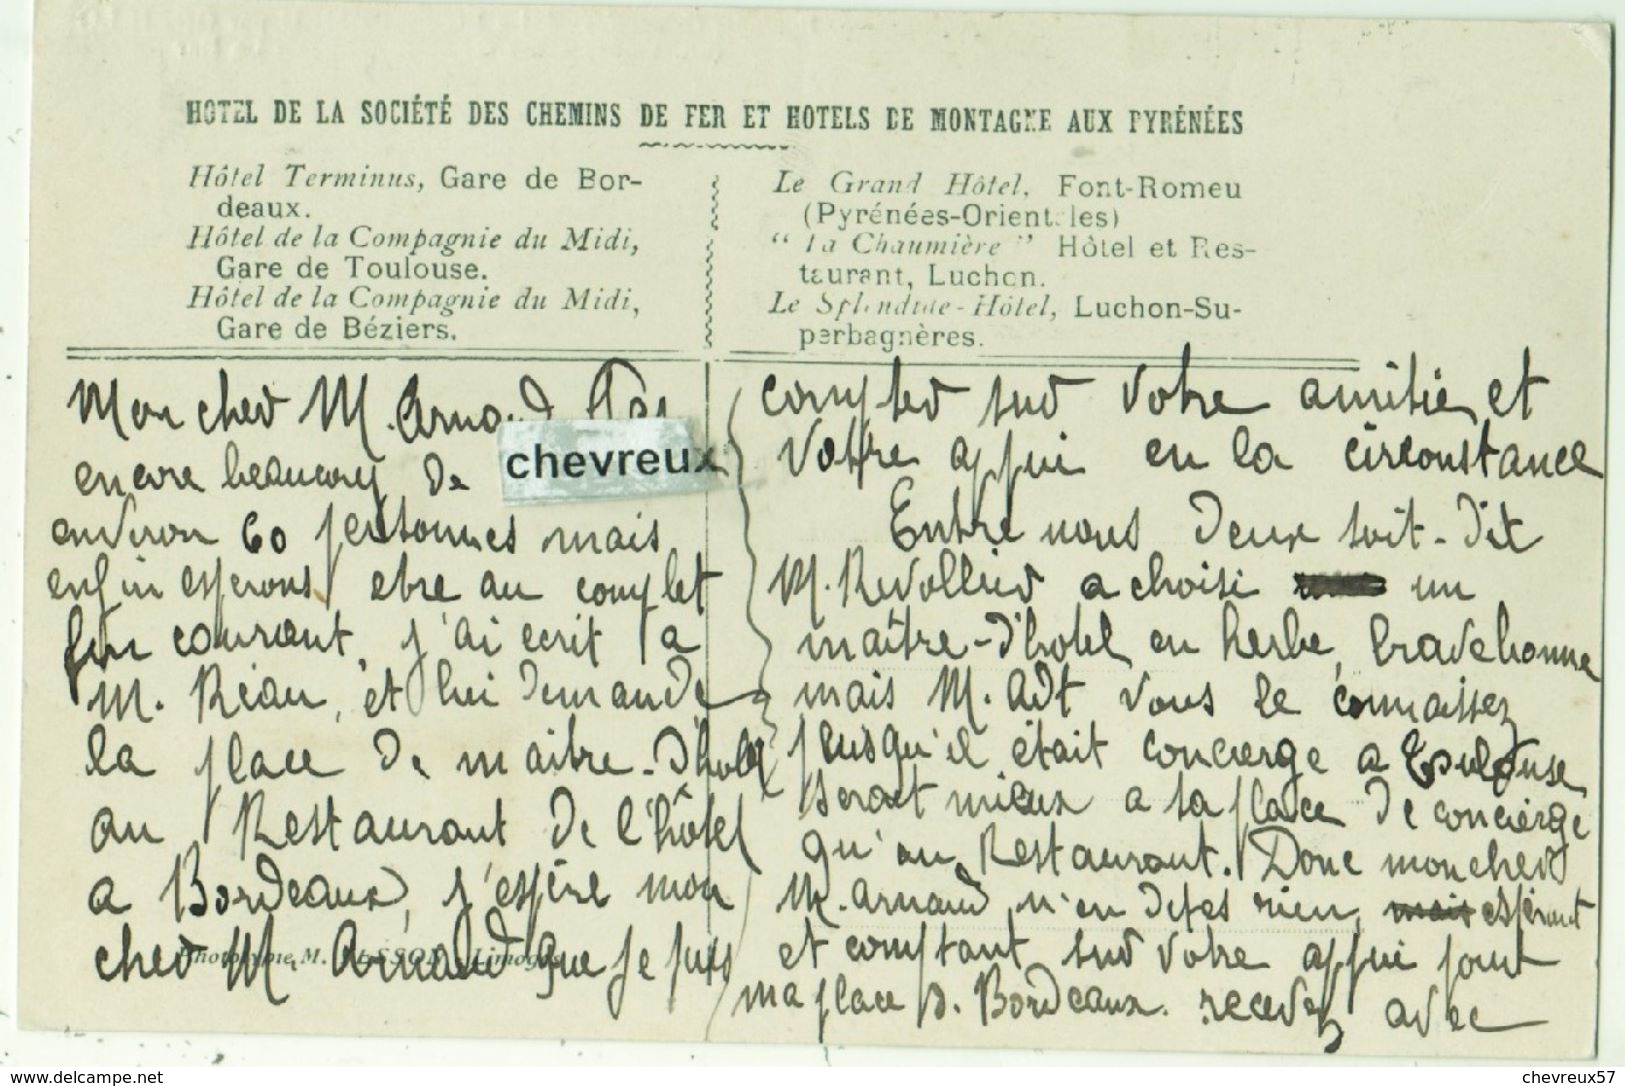 HOTEL DE LA SOCIÉTÉ DES CHEMINS DE FER ET HOTELS DE MONTAGNE AUX PYRÉNÉES
Hôtel Terminus, Gare de Bor-
deaux.
Hôtel de la Compagnie du Midi,
Gare de Toulouse.
Hôtel de la Compagnie du Midi,
Gare de Béziers.
Le Grand Hôtel, Font-Romeu
(Pyrénées-Orientales)
“ La Chaumière ” Hôtel et Res-
taurant, Luchon.
Le Splendide-Hôtel, Luchon-Su-
perbagnères.
Mon cher M. Arnaud Pas
encore beaucoup de
chevreux
environ 60 personnes mais
enfin esperons etre au complet
fin courant, j'ai ecrit a
M. Réau, et lui demande
la place de maitre-d'hotel
au Restaurant de l'hôtel
a Bordeaux, j'espère mon
cher M. Arnaud que je puis
Phototypie M. Limoges
compter sur votre amitié et
votre appui en la circonstance
Entre nous deux soit-dit
M. Revollier a choisi un
maître-d'hotel en herbe, brave homme
mais M. Adt vous le connaissez
puisqu'il était concierge a Toulouse
serait mieux a sa place de concierge
qu'au Restaurant. Donc mon cher
M. Arnaud n'en dites rien, mais espérant
et comptant sur votre appui pour
ma place d. Bordeaux. recevez avec
www.delcampe.net
chevreux57